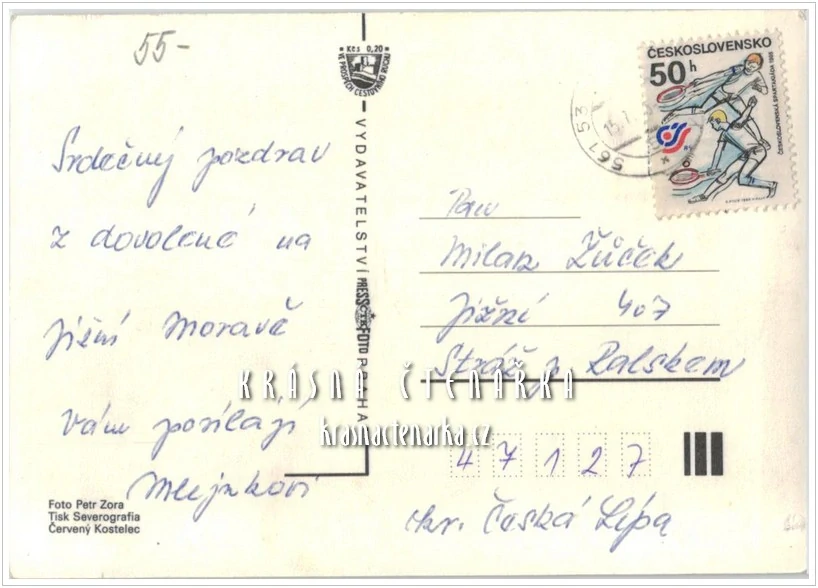 55-
Kčs 0,20
VE PROSPĚCH CESTOVNÍHO RUCHU
Srdečný pozdrav
z dovolené na
jižní Moravě
Vám posílají
Mlejnkovi
Foto Petr Zora
Tisk Severografia
Červený Kostelec
VYDAVATELSTVÍ PRESSFOTO PRAHA
ČTK
ČESKOSLOVENSKO
50 h
ČESKOSLOVENSKÁ SPARTAKIÁDA 1985
561 53
15.7.
Pan
Milan Žůček
Jižní 407
Stráž p Ralskem
47127
okr. Česká Lípa
KRÁSNÁ ČTENÁŘKA
krasnactenarka.cz